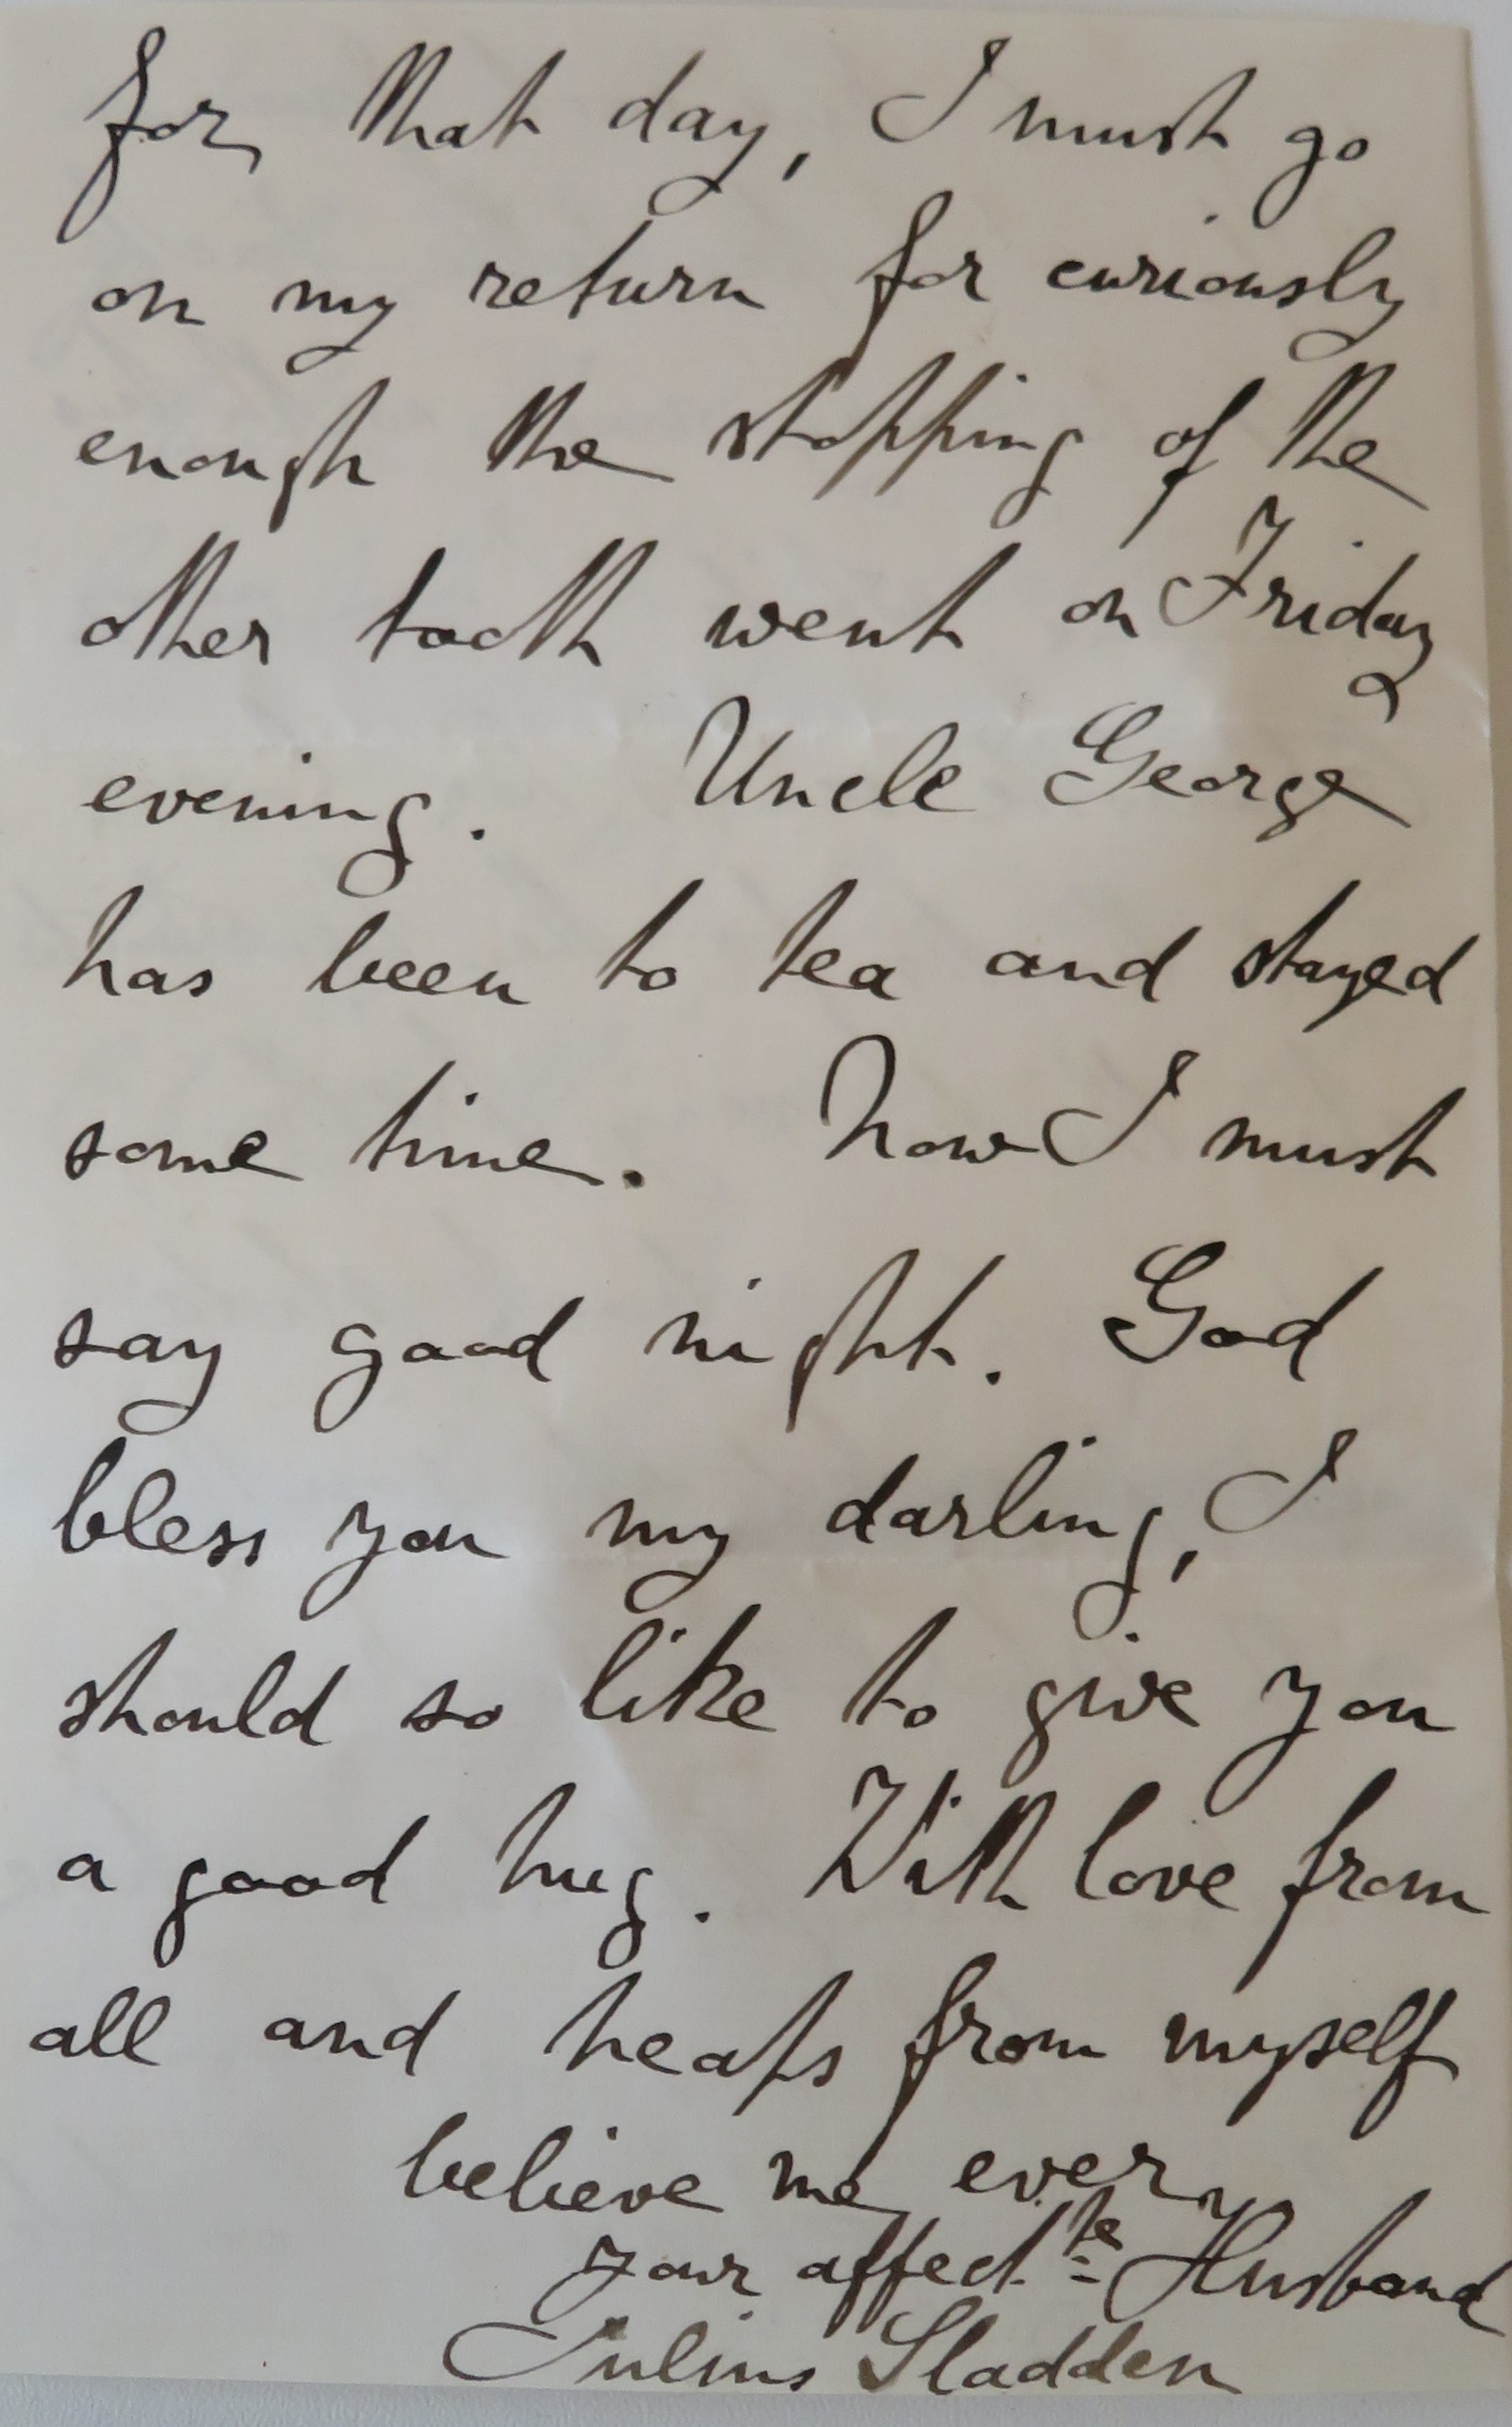 for that day, I must go
on my return for curiously
enough the stopping of the
other tooth went on Friday
evening. Uncle George
has been to tea and stayed
some time. Now I must
say good night. God
bless you my darling, I
should so like to give you
a good hug. With love from
all and heaps from myself
believe me ever
your affect.te Husband
Julius Sladden